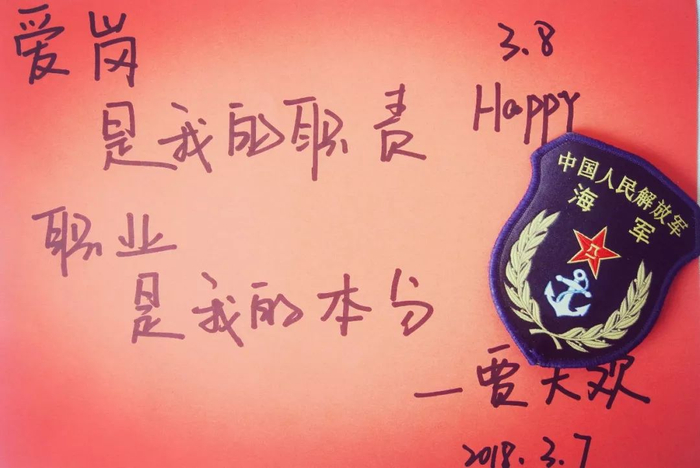 爱岗
是我的职责
职业
是我的本分
3.8
Happy
中国人民解放军
海军
八一
—贾天欢
2018.3.7